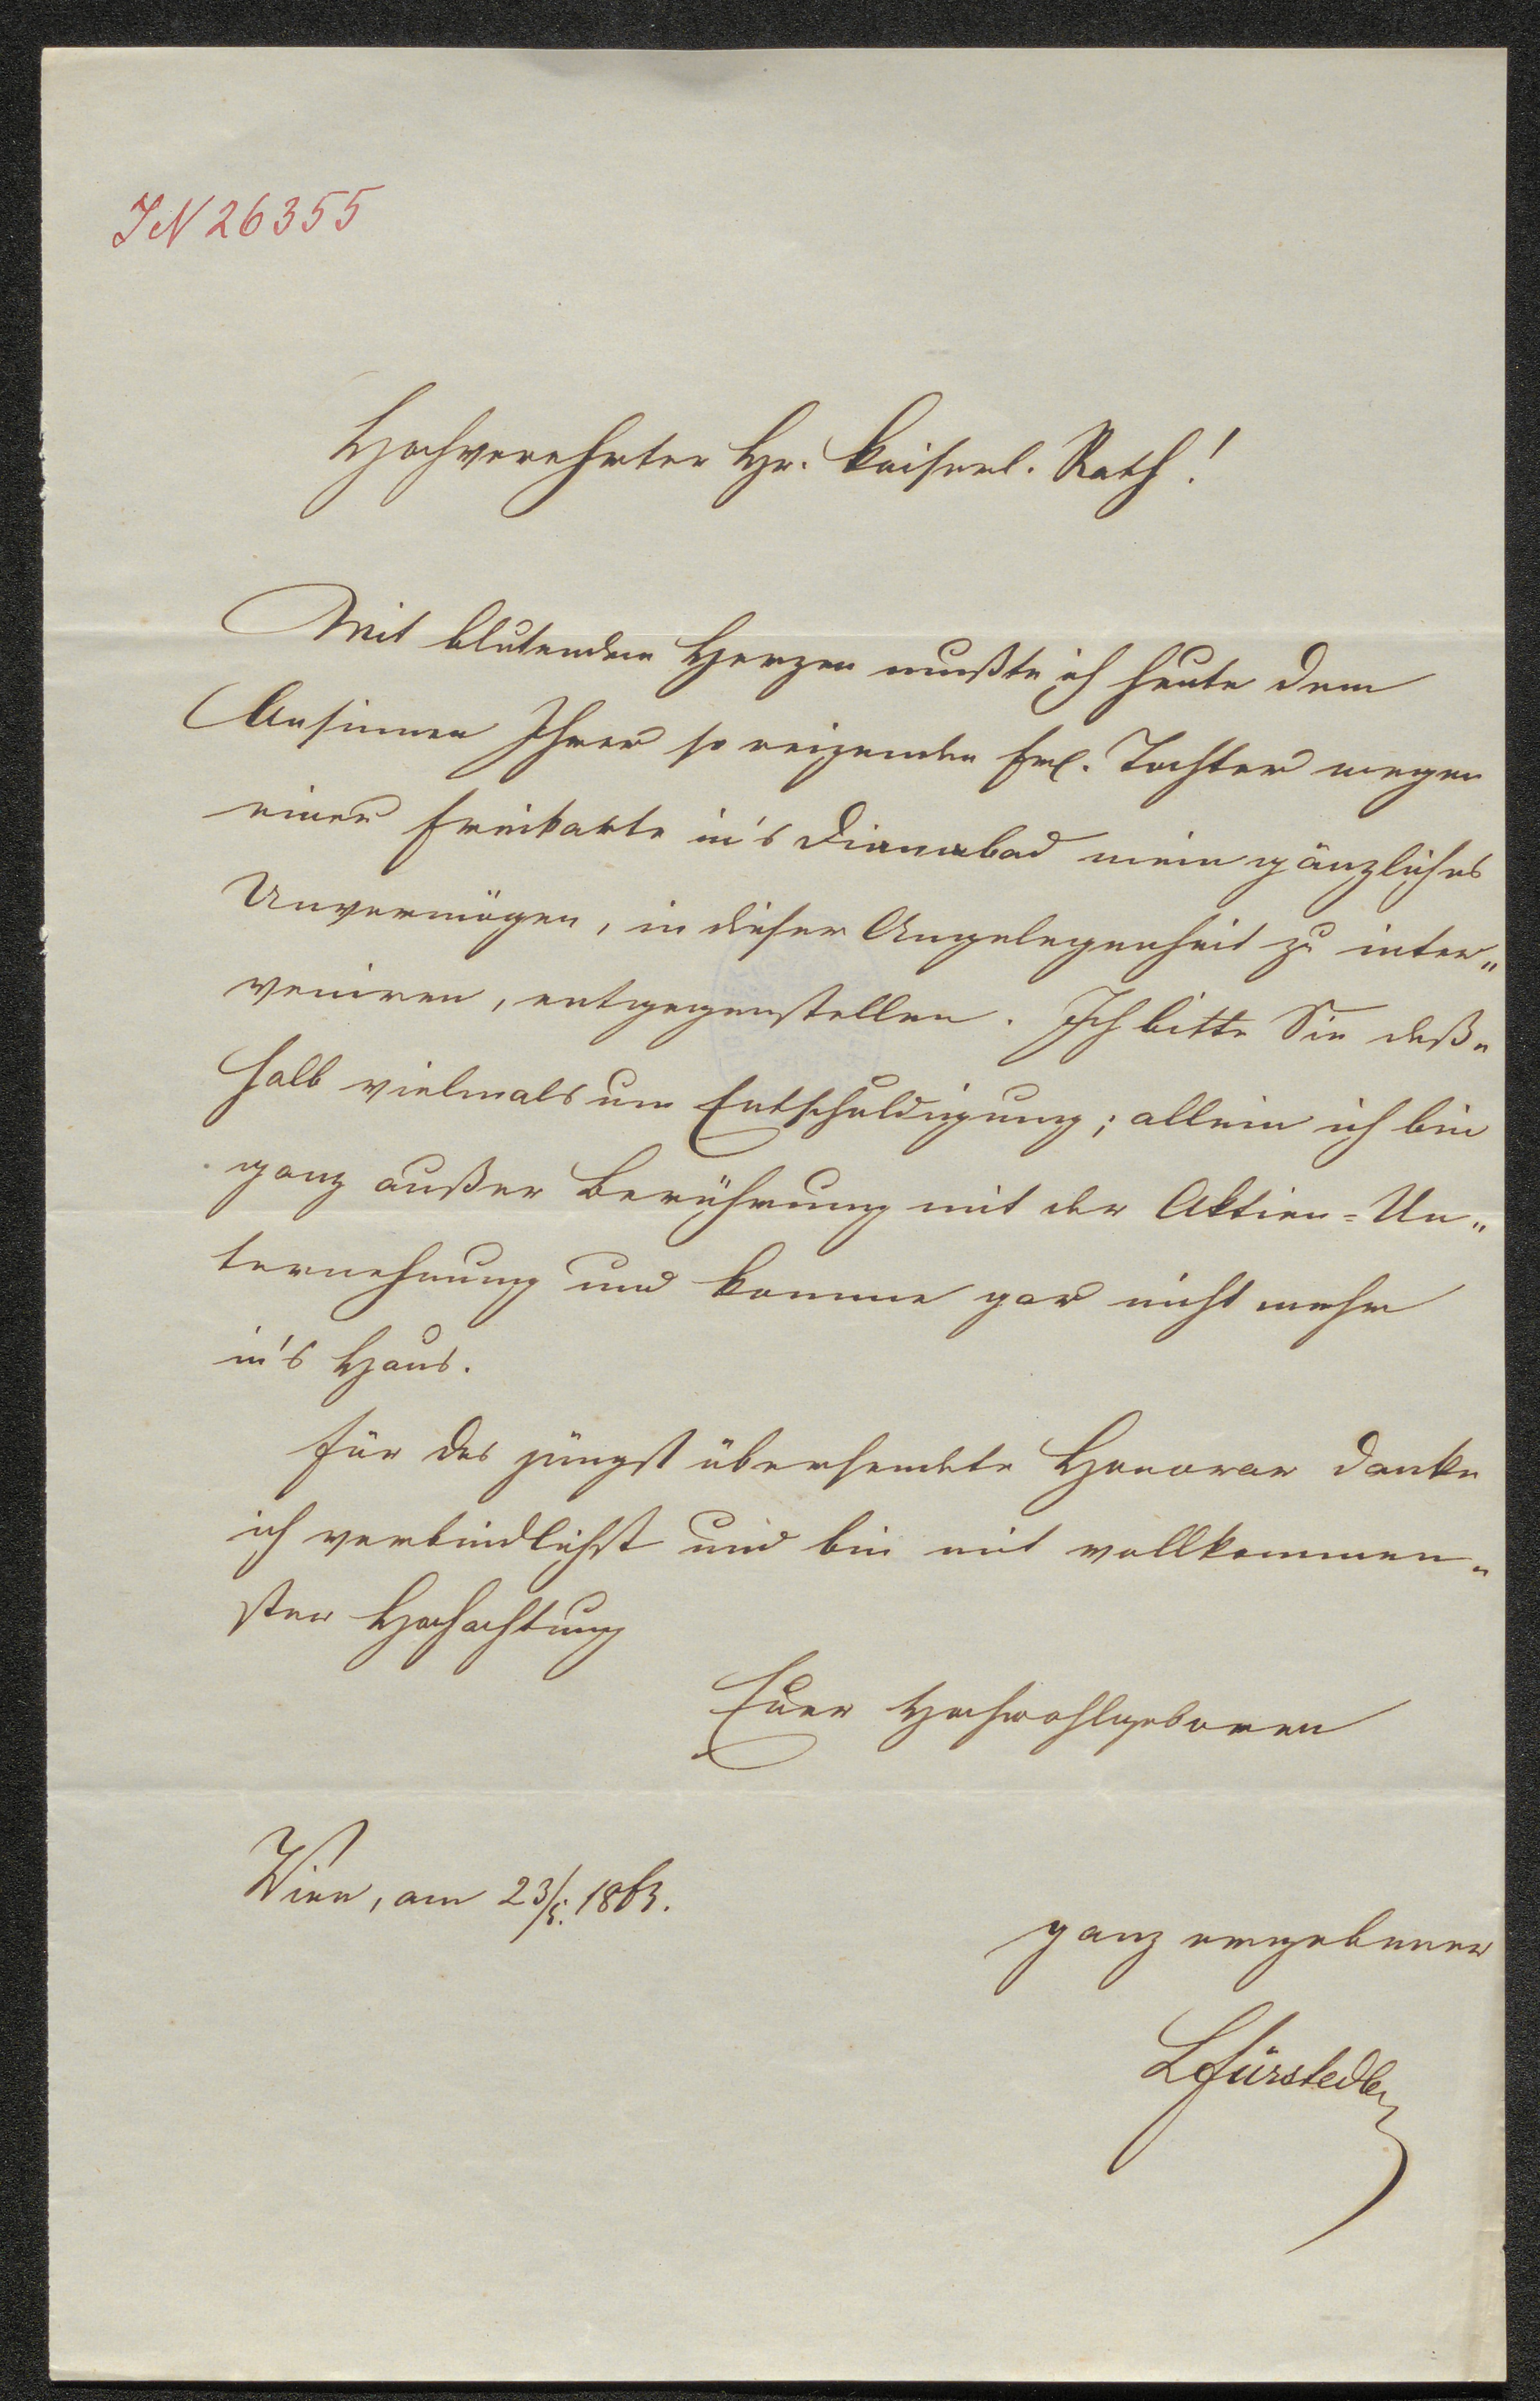 IN 26355
Hochverehrter Hr. kaiserl. Rath!
Mit blutendem Herzen mußte ich heute dem
Ansinnen Ihrer so reizenden Frl. Tochter wegen
einer Freikarte in's Dianabad mein gänzliches
Unvermögen, in dieser Angelegenheit zu inter„
veniren, entgegenstellen. Ich bitte Sie deß„
halb vielmals um Entschuldigung; allein ich bin
ganz außer Berührung mit der Aktien-Un„
ternehmung und komme gar nicht mehr
in's Haus.
Für das jüngst übersendete Honorar danke
ich verbindlichst und bin mit vollkommen„
ster Hochachtung
Euer Hochwohlgeboren
Wien, am 23/5. 1863.
ganz ergebener
LFürstedler